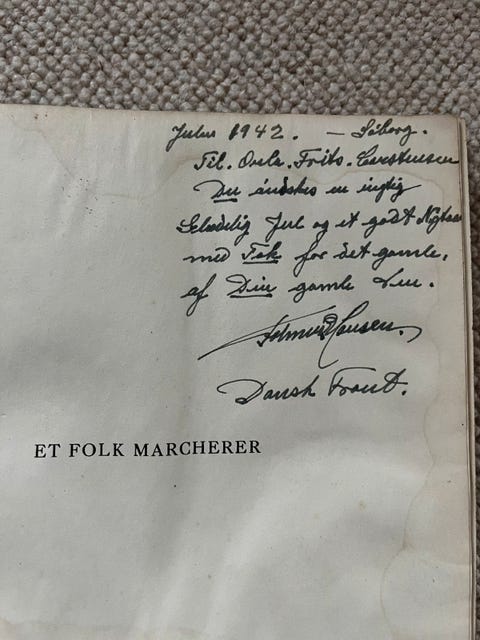 Julen 1942. – Søborg.
Til. Onkel. Frits. Carstensen
Du ønskes en rigtig
Glædelig Jul og et godt Nytaar
med Tak for det gamle.
af Din gamle Ven.
Hansen.
Dansk Front.
ET FOLK MARCHERER